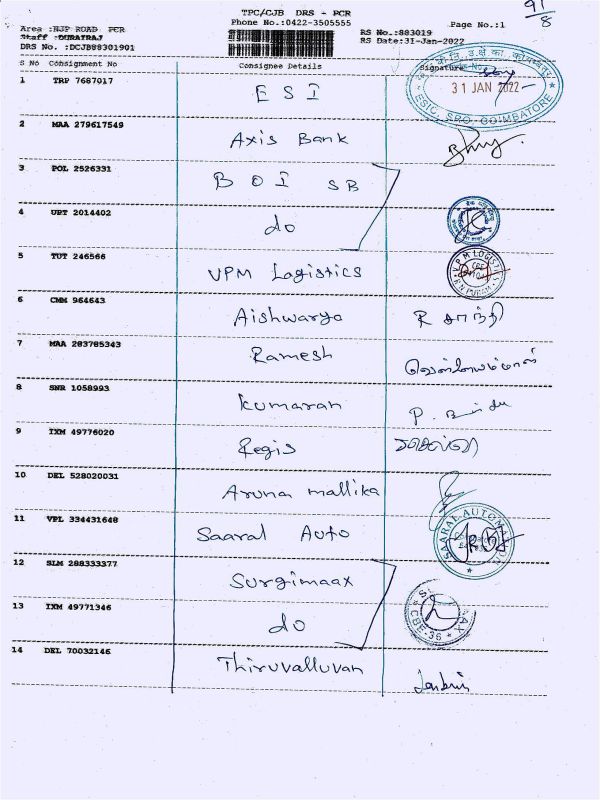 TPC/CJB DRS - PCR
91/8
Phone No.:0422-3505555
Page No.:1
Area :NJP ROAD PCR
Staff :DURAIRAJ
DRS No. :DCJB88301901
RS No.:883019
RS Date:31-Jan-2022
S No Consignment No Consignee Details Signature
1 TRP 7687017 E S I
31 JAN 2022
ESIC, SRO, COIMBATORE
2 MAA 279617549 Axis Bank
3 POL 2526331 B O I SB
4 UPT 2014402 do
5 TUT 246566 VPM Logistics
VPM LOGISTICS
6 CMM 964643 Aishwarya R சாந்தி
7 MAA 283785343 Ramesh
8 SNR 1058993 Kumaran P. Bindu
9 IXM 49776020 Regis
10 DEL 528020031 Aruna mallika
11 VPL 334431648 Saaral Auto
12 SLM 288333377 Surgimaax
13 IXM 49771346 do
CBE-36
14 DEL 70032146 Thiruvalluvan